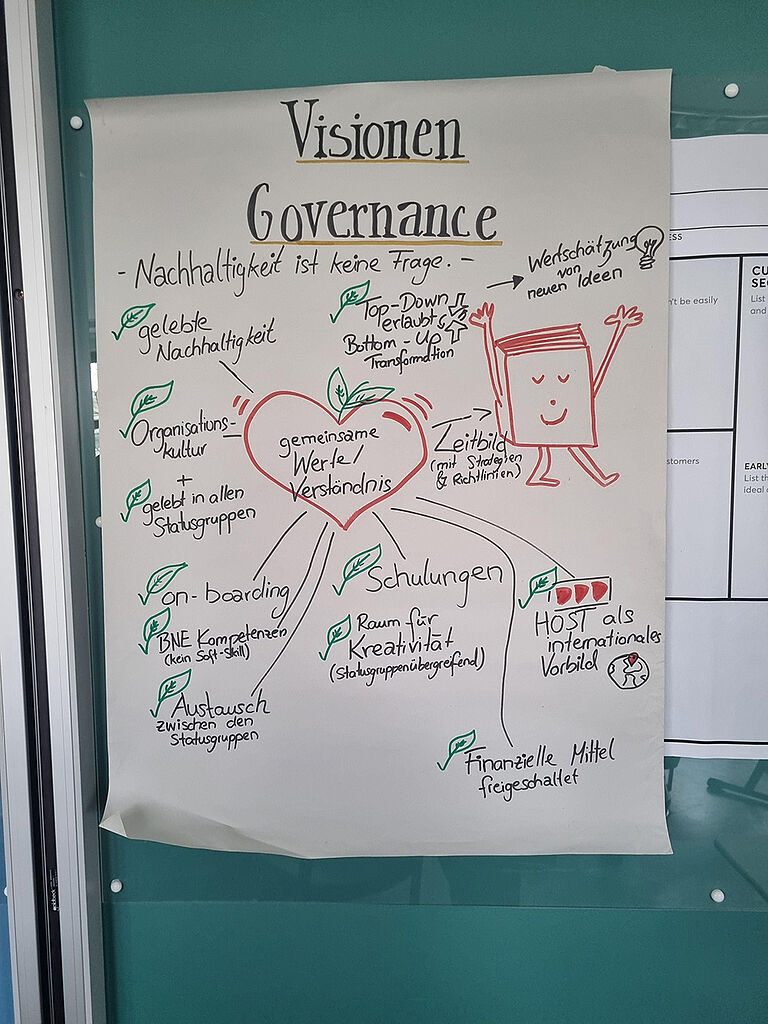 Visionen
Governance
- Nachhaltigkeit ist keine Frage. -
Wertschätzung
von
neuen Ideen
gelebte
Nachhaltigkeit
Top-Down
erlaubt
Bottom-Up
Transformation
Organisations-
kultur
+
gelebt in allen
Statusgruppen
gemeinsame
Werte/
Verständnis
Leitbild
(mit Strategien
& Richtlinien)
on-boarding
BNE Kompetenzen
(kein Soft-Skill)
Austausch
zwischen den
Statusgruppen
Schulungen
Raum für
Kreativität
(Statusgruppenübergreifend)
HOST als
internationales
Vorbild
Finanzielle Mittel
freigeschaltet
ESS
't be easily
stomers
CU
SE
List
and
EARL
List th
ideal c